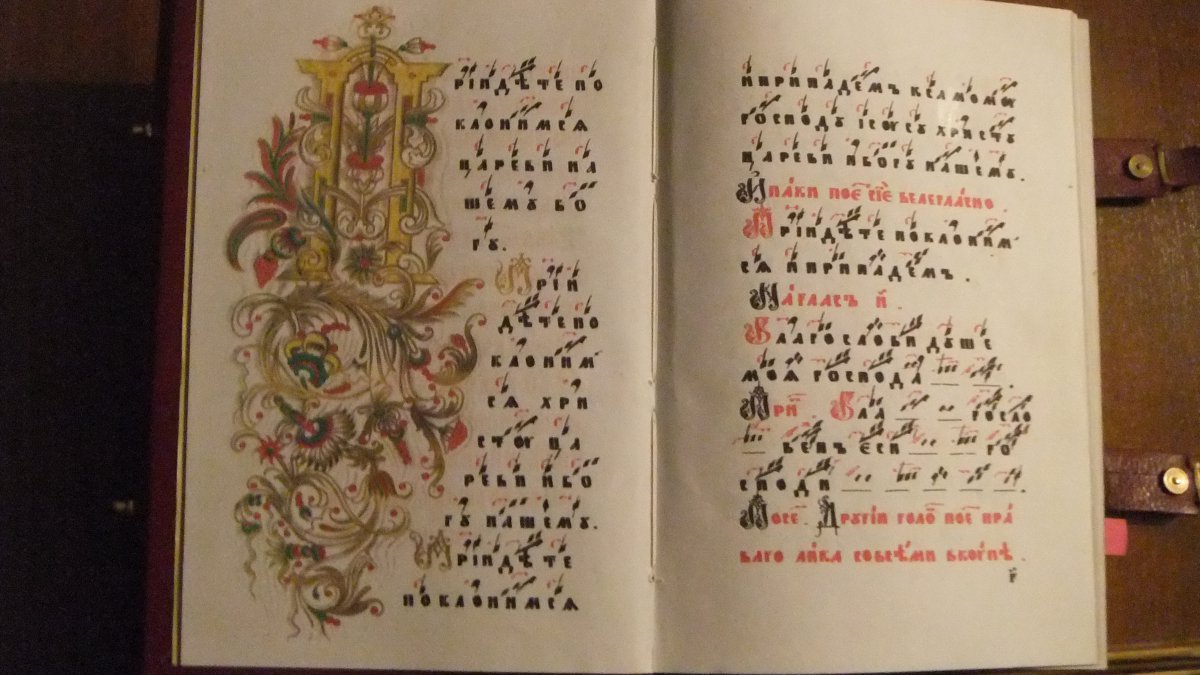 П
РІИДѢТЕ ПО
КЛОНИМСѦ
ЦАРЕВИ НА
ШЕМУ БО
ГУ.
ПРІИ
ДѢТЕ ПО
КЛОНИМ
СѦ ХРИ
СТОУ ЦА
РЕВИ И БО
ГУ НАШЕМУ.
ПРІИДѢТЕ
ПОКЛОНИМСѦ
И ПРИПАДЕМЪ К САМОМОУ
ГОСПОДУ ІСОУСУ ХРИСТУ
ЦАРЕВИ И БОГУ НАШЕМУ.
И ПАКИ ПОЕ СІЕ ВЕЛЕГЛАСНО
ПРІИДѢТЕ ПОКЛОНИМ
СѦ И ПРИПАДЕМЪ.
НА ГЛАСЪ И.
БЛАГОСЛОВИ ДУШЕ
МОѦ ГОСПОДА.
ПРИ. БЛА ГОСЛО
ВЕНЪ ЄСИ ГО
СПОДИ.
ПОСЕ. ДРУГІИ ГОЛО ПОЕ ПРА
ВАГО ЛИКА СО ВСѢМИ ВКОУПѢ.